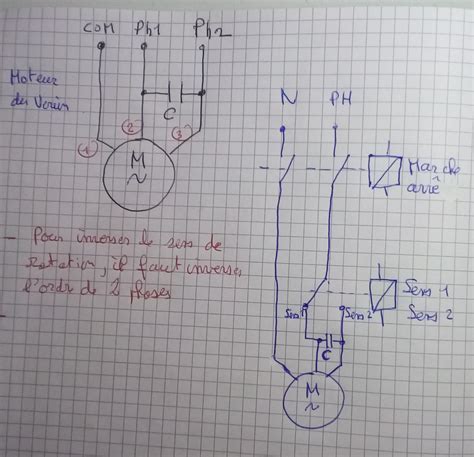 COM Ph1 Ph2
Moteur
du Verin
C
1 2 3
M
~
- Pour inverser le sens de
rotation, il faut inverser
l'ordr de 2 phases
N PH
Marche
arrê
Sens 1
Sens 2
Sens 1 Sens 2
C
M
~